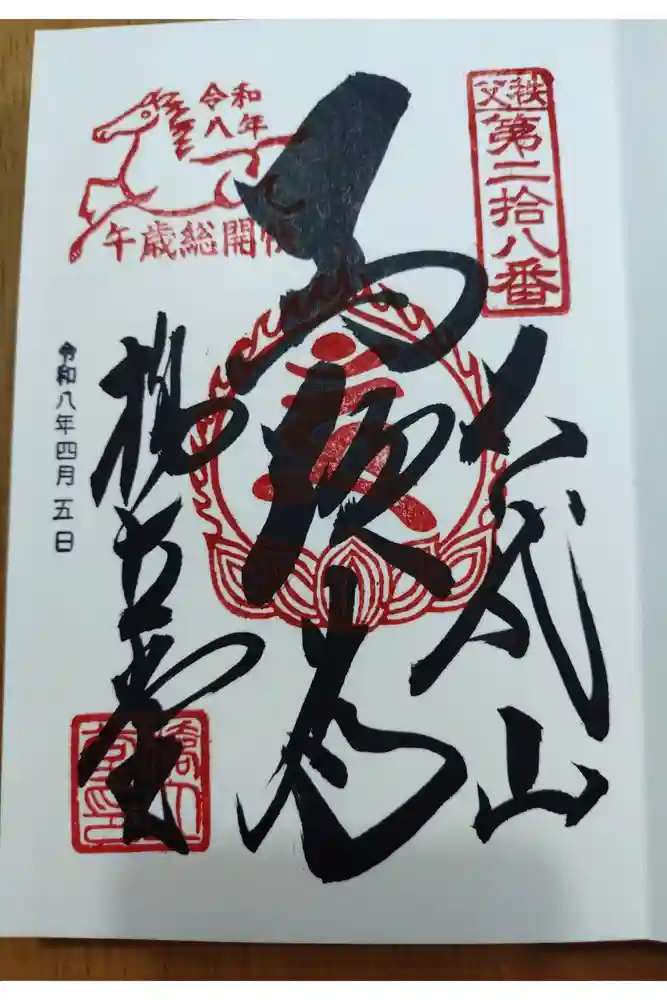 秩父
第二拾八番
山
馬頭尊
橋立堂
令和
八年
午歳総開帳
令和八年四月五日